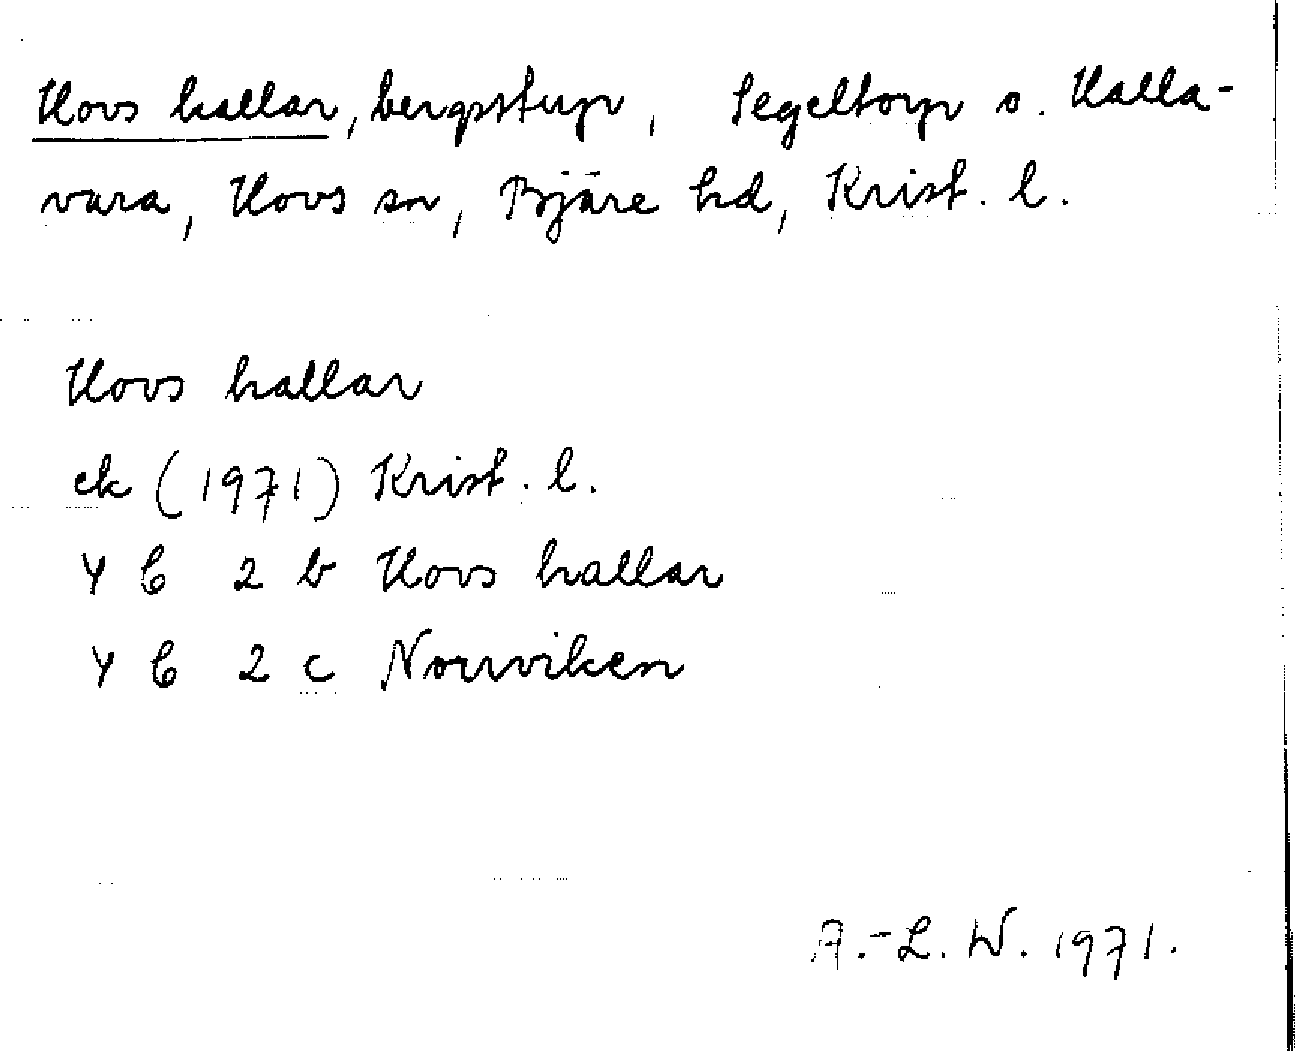 Hovs hallar, bergstup, Segeltorp o. Halla-
vara, Hovs sn, Bjäre hd, Krist. l.
Hovs hallar
ek (1971) Krist. l.
4 C 2 b Hovs hallar
4 C 2 c Norrviken
A.-L. W. 1971.